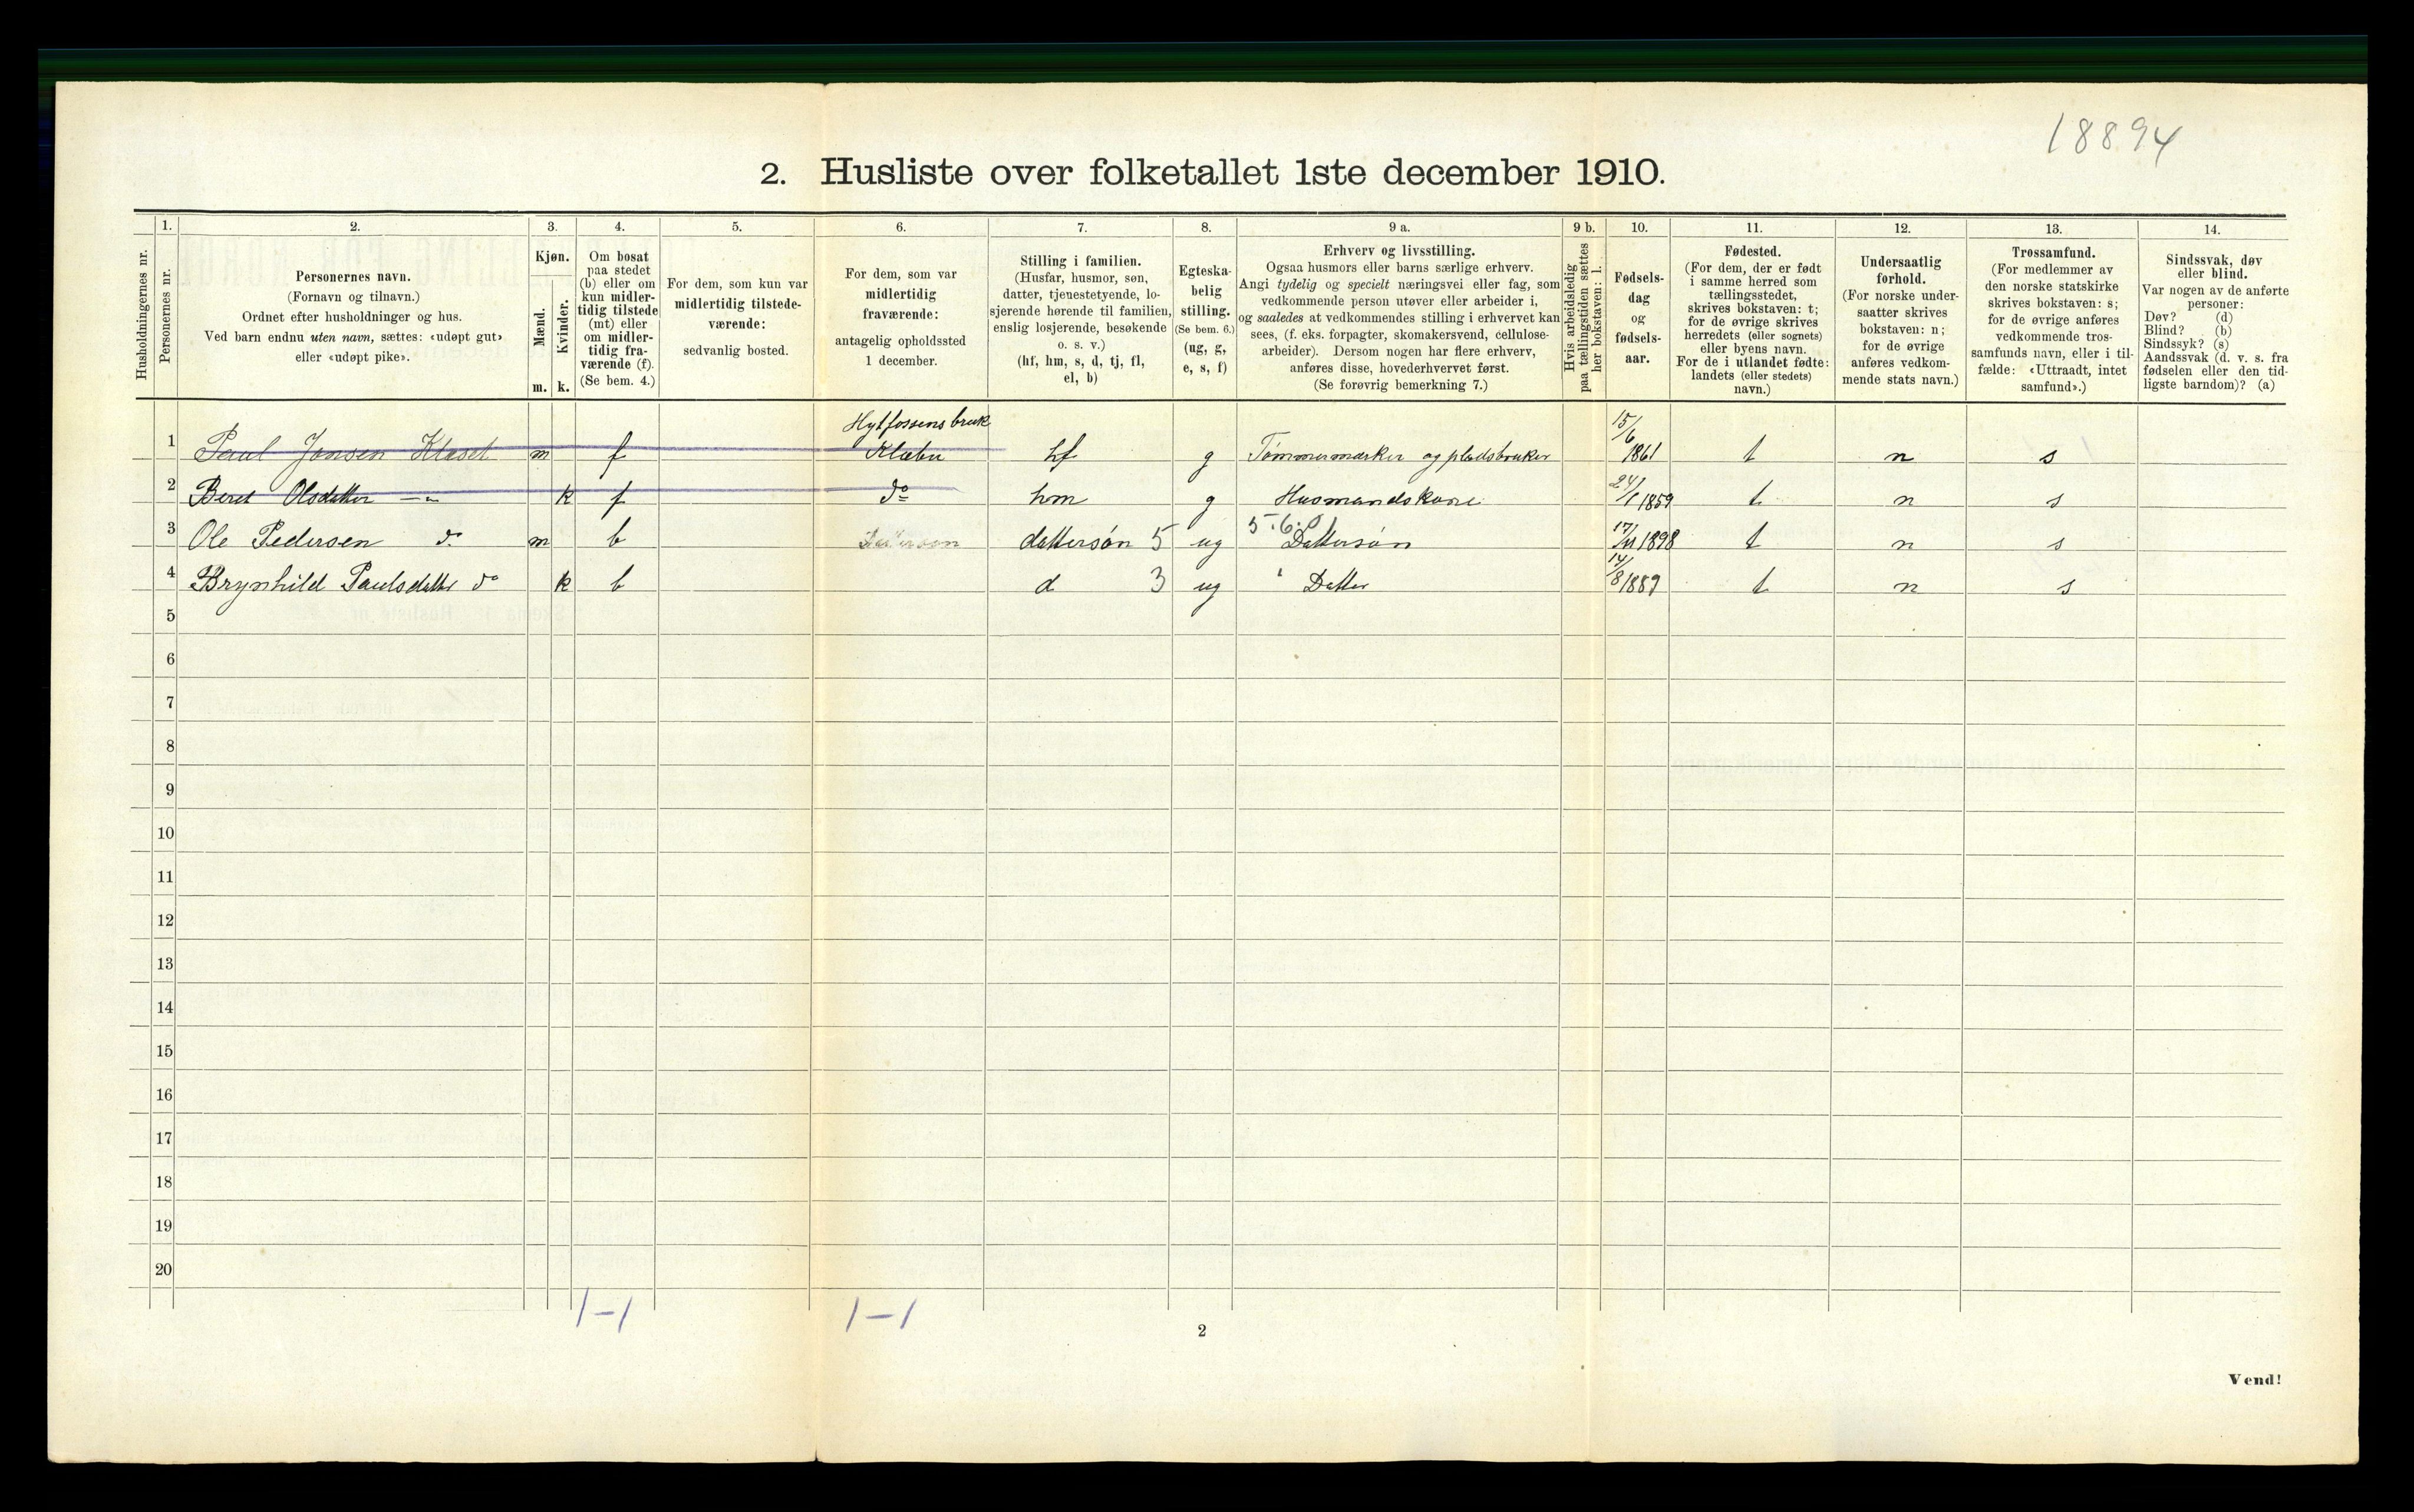 18894
2. Husliste over folketallet 1ste december 1910.
Husholdningernes nr.
1. Personernes nr.
2. Personernes navn.
(Fornavn og tilnavn.)
Ordnet efter husholdninger og hus.
Ved barn endnu uten navn, sættes: «udøpt gut»
eller «udøpt pike».
3. Kjøn.
Mænd. m.
Kvinder. k.
4. Om bosat
paa stedet
(b) eller om
kun midler-
tidig tilstede
(mt) eller
om midler-
tidig fra-
værende (f).
(Se bem. 4.)
5. For dem, som kun var
midlertidig tilstede-
værende:
sedvanlig bosted.
6. For dem, som var
midlertidig
fraværende:
antagelig opholdssted
1 december.
7. Stilling i familien.
(Husfar, husmor, søn,
datter, tjenestetyende, lo-
sjerende hørende til familien,
enslig losjerende, besøkende
o. s. v.)
(hf, hm, s, d, tj, fl,
el, b)
8. Egteska-
belig
stilling.
(Se bem. 6.)
(ug, g,
e, s, f)
9 a. Erhverv og livsstilling.
Ogsaa husmors eller barns særlige erhverv.
Angi tydelig og specielt næringsvei eller fag, som
vedkommende person utøver eller arbeider i,
og saaledes at vedkommendes stilling i erhvervet kan
sees, (f. eks. forpagter, skomakersvend, cellulose-
arbeider). Dersom nogen har flere erhverv,
anføres disse, hovederhvervet først.
(Se forøvrig bemerkning 7.)
9 b. Hvis arbeidsledig
paa tællingstiden sættes
her bokstaven: l.
10. Fødsels-
dag
og
fødsels-
aar.
11. Fødested.
(For dem, der er født
i samme herred som
tællingsstedet,
skrives bokstaven: t;
for de øvrige skrives
herredets (eller sognets)
eller byens navn.
For de i utlandet fødte:
landets (eller stedets)
navn.)
12. Undersaatlig
forhold.
(For norske under-
saatter skrives
bokstaven: n;
for de øvrige
anføres vedkom-
mende stats navn.)
13. Trossamfund.
(For medlemmer av
den norske statskirke
skrives bokstaven: s;
for de øvrige anføres
vedkommende tros-
samfunds navn, eller i til-
fælde: «Uttraadt, intet
samfund».)
14. Sindssvak, døv
eller blind.
Var nogen av de anførte
personer:
Døv? (d)
Blind? (b)
Sindssyk? (s)
Aandssvak (d. v. s. fra
fødselen eller den tid-
ligste barndom)? (a)
1 Paul Jonsen Klæset m f Hytfossens bruk Klæbu hf g Tømmermærker og pladsbruker 15/6 1861 t n s
2 Beret Olsdatter —"— k f do hm g Husmandskone 24/1 1859 t n s
3 Ole Pedersen do m b dattersøn 5 ug 5.6.0 Dattersøn 17/ 1898 t n s
4 Brynhild Paulsdatter do k b d 3 ug " Datter 14/8 1889 t n s
5
6
7
8
9
10
11
12
13
14
15
16
17
18
19
20
1-1 1-1
2
Vend!